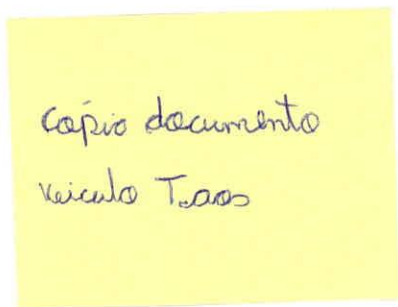 Cópia documento
Veiculo Taos